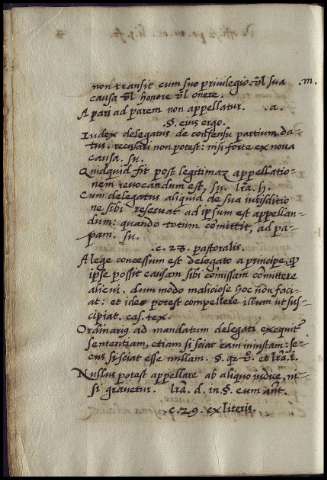 non transit cum suo privilegio vl sua .m.
causa vl honore vl onere.
A pari ad parem non appellatur. .a.
.§. cum ergo.
Iudex delegatus de consensu partium da-
tus. recusari non potest: nisi forte ex nova
causa. su.
Quidquid fit post legitimam appellatio-
nem revocandum est, su. lra. h.
Cum delegatus aliquid de sua iurisditio
ne sibi reservat ad ipsum est appellan-
dum: quando totum comittit, ad pa-
pam. su.
.c. 28. pastoralis.
A lege concessum est delegato a principe, q
ipse possit causam sibi comissam comittere
alicui. dum modo maliciose hoc non faci-
at: et ideo potest compellere illum ut sus-
cipiat. cas. tex.
Ordinarius ad mandatum delegati exequit
sententiam, etiam si sciat eam iniustam: se-
cus si sciat esse nullam. §. et lra.
Nullus potest appellare ab aliquo iudice, ni-
si gravetur. lra. d. in §. cum aut.
.c. 29. ex literis.